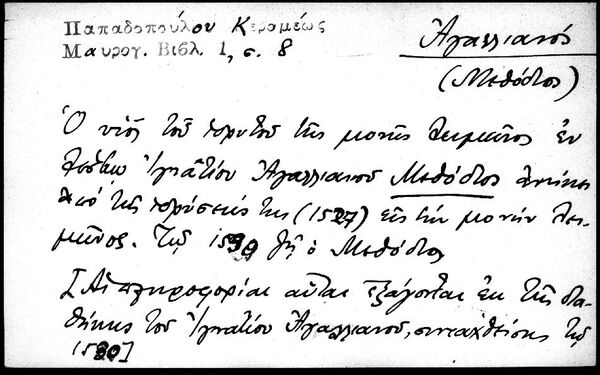 Παπαδοπούλου Κεραμέως
Μαυρογ. Βιβλ. 1, σ. 8
Ἀγαλλιανός
(Μεθόδιος)
Ὁ υἱὸς τοῦ ἱδρυτοῦ τῆς μονῆς Λειμῶνος ἐν
Λέσβῳ Ἰγνατίου Ἀγαλλιανοῦ Μεθόδιος ἀνῆκεν
ἀπὸ τῆς ἱδρύσεώς της (1527) εἰς τὴν μονὴν Λει-
μῶνος. Τῷ ζῇ ὁ Μεθόδιος
[Αἱ πληροφορίαι αὗται ἐξάγονται ἐκ τῆς δια-
θήκης τοῦ Ἰγνατίου Ἀγαλλιανοῦ, συνταχθείσης τῷ